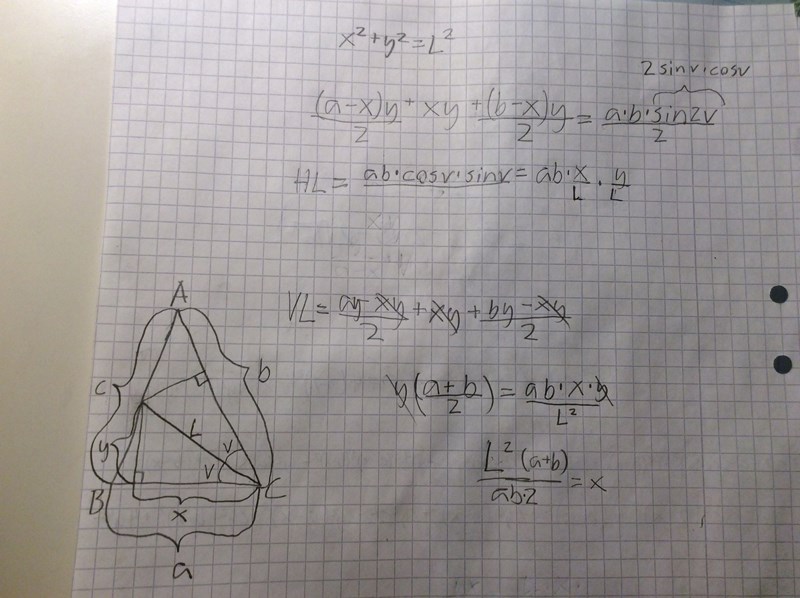 x²+y²=L²
2sinv·cosv
(a-x)y/2 + xy + (b-x)y/2 = a·b·sin2v/2
HL = ab·cosv·sinv = ab·x/L·y/L
VL = ay-xy/2 + xy + by-xy/2
y(a+b/2) = ab·x·y/L²
L²(a+b)/ab·2 = x
A
c
b
L
v
y
v
B
x
C
a